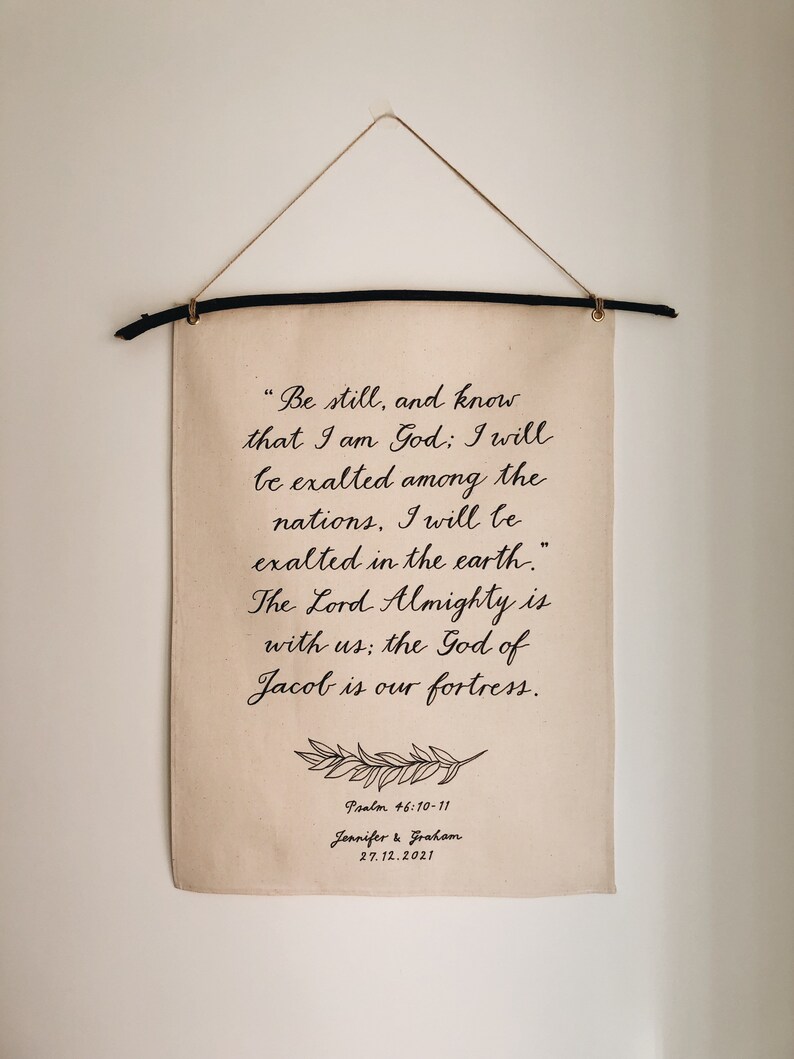 “Be still, and know
that I am God; I will
be exalted among the
nations, I will be
exalted in the earth.”
The Lord Almighty is
with us; the God of
Jacob is our fortress.
Psalm 46:10-11
Jennifer & Graham
27.12.2021